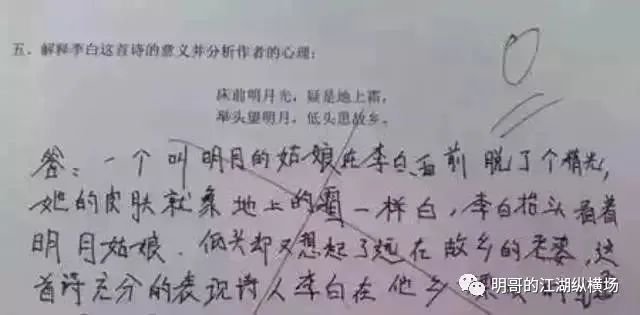 五、解释李白这首诗的意义并分析作者的心理:
床前明月光,疑是地上霜,
举头望明月,低头思故乡。
0
答:一个叫明月的姑娘在李白面前脱了个精光,
她的皮肤就象地上的霜一样白,李白抬头看着
明月姑娘.低头却又想起了远在故乡的老婆,这
首诗充分的表现诗人李白在他乡
明哥的江湖纵横场